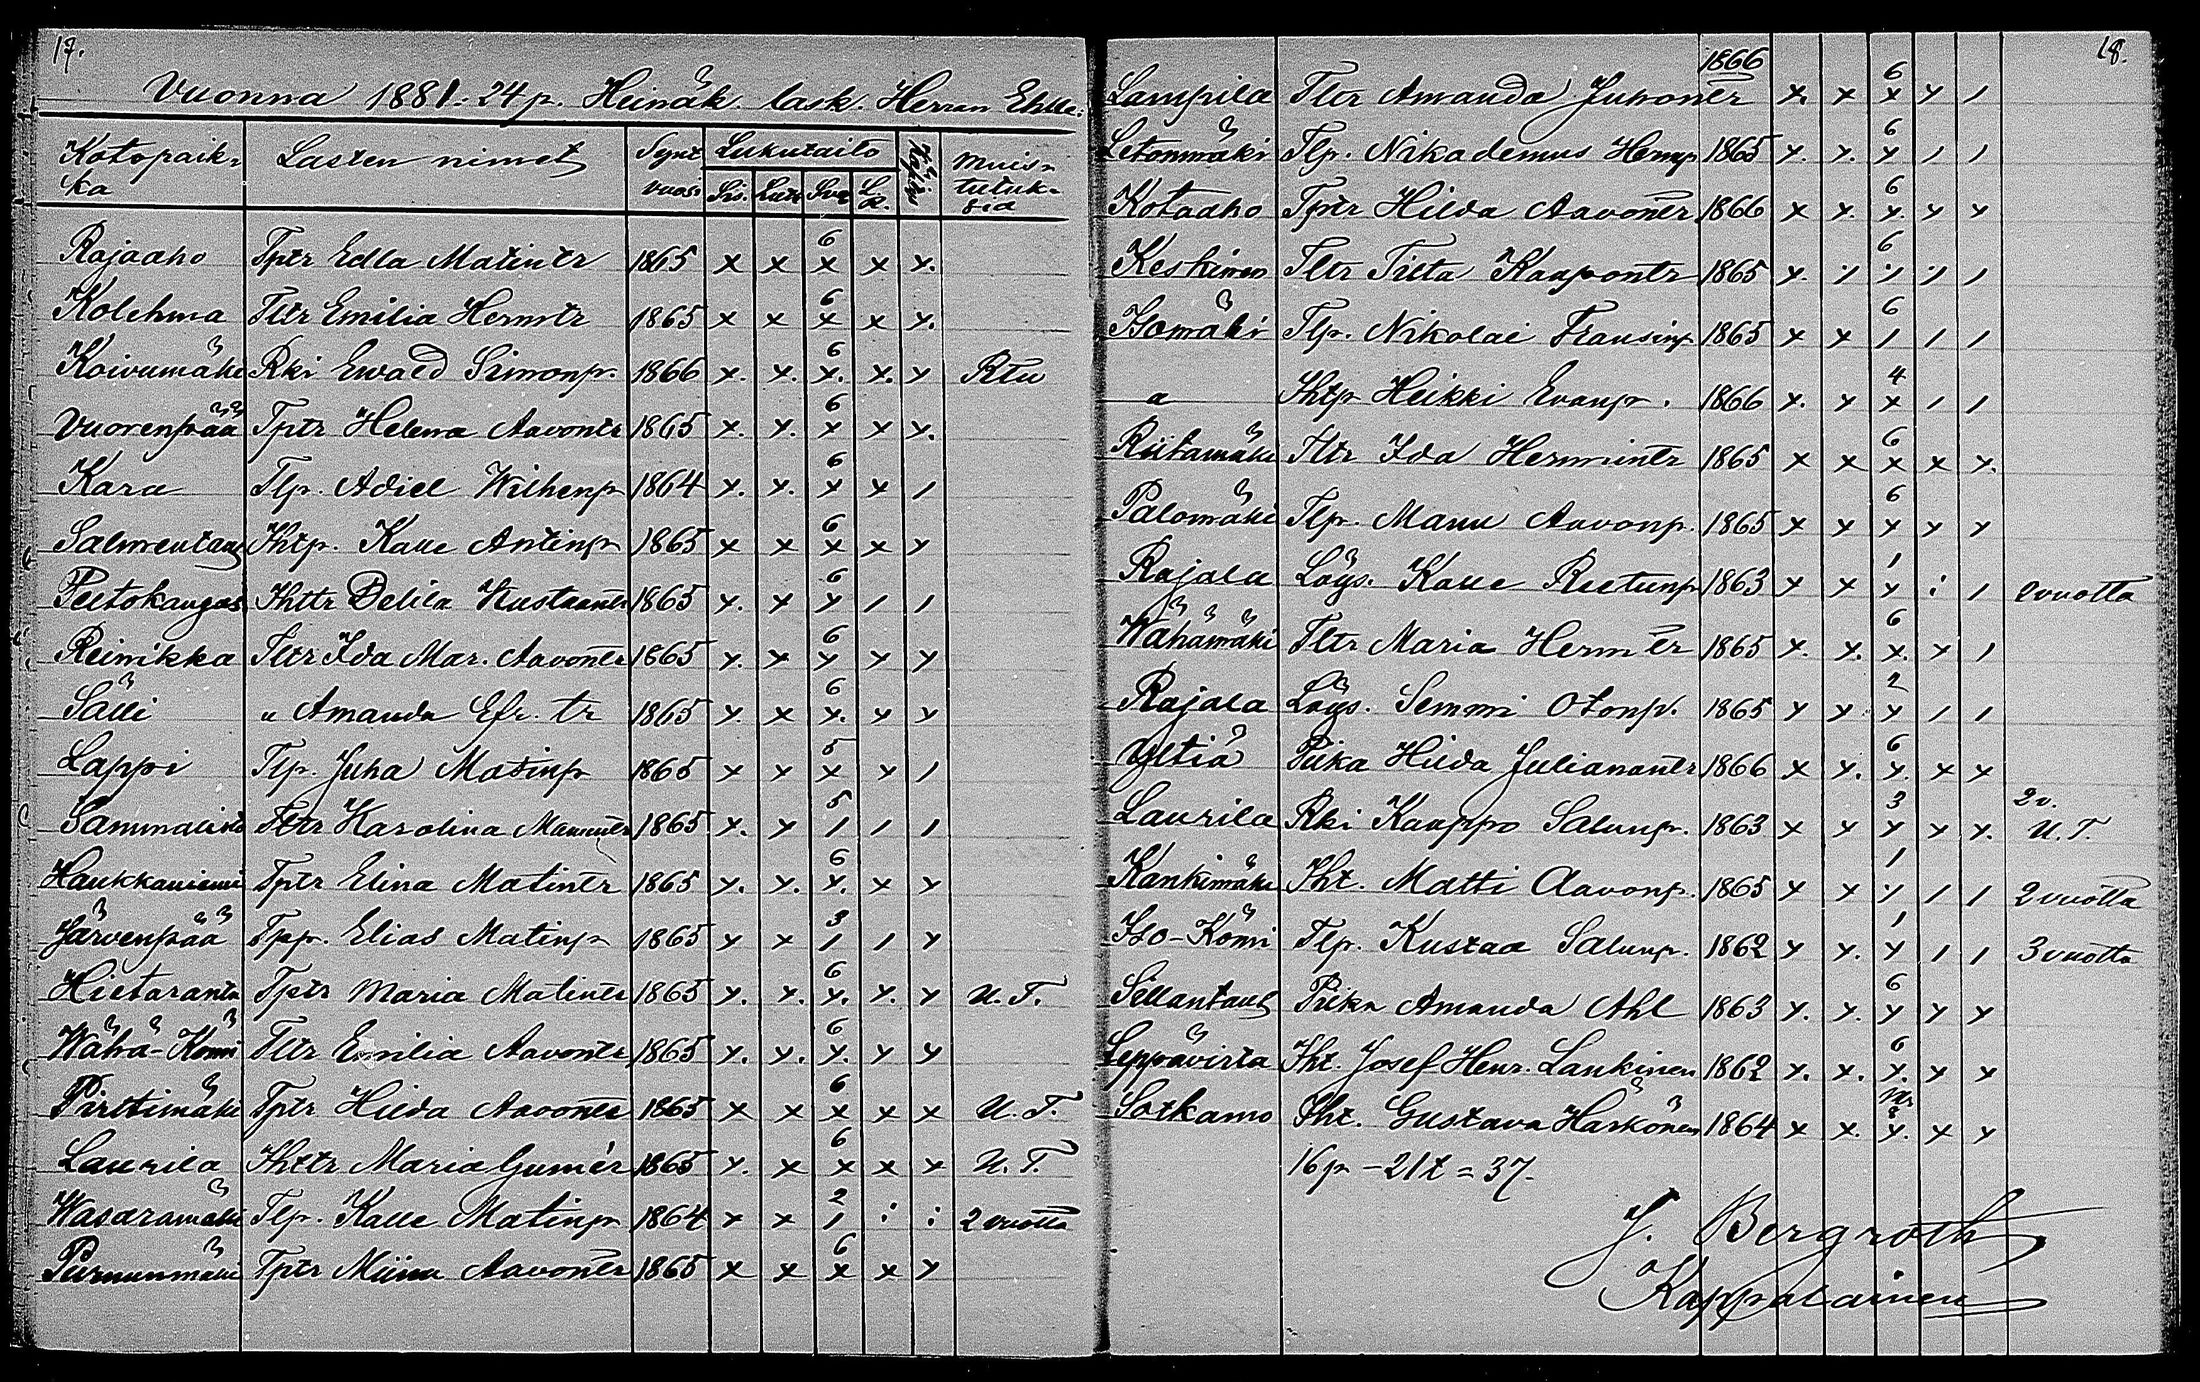 17.
Vuonna 1881. 24 p. Heinäk. lask. Herran Ehtlle.
Kotopaik-ka Lasten nimet Synt. vuosi Lukutaito Sis. Luk. Muis-tutuk-sia
Rajaaho Tptr Edla Matintr 1865 x x 6 x x x.
Kolehma Tltr Emilia Hermtr 1865 x x 6 x x x.
Koivumäki Rki Ewald Simonp. 1866 x. x. 6 x. x. x Rtu
Vuorenpää Tptr Helena Aavontr 1865 x. x. 6 x x x.
Kara Tlp. Adiel Wilhenp 1864 x. x. 6 x x /
Salmentaus Ihtp. Kalle Antinp 1865 x x 6 x x x
Peitokangas Ihttr Delila Kustaantr 1865 x. x 6 x / /
Reinikka Tltr Ida Mar. Aavontr 1865 x. x 6 x x x
Sälli " Amanda Efr. tr 1865 x. x 6 x. x x
Lappi Tlp. Juha Matinp 1865 x x 5 x x /
Sammalisto Tltr Karolina Manuntr 1865 x. x 5 / / /
Haukkaniemi Tptr Elina Matintr 1865 x. x. 6 x. x x
Järvenpää Tpp. Elias Matinp 1865 x x 3 / / x
Hietaranta Tptr Maria Matintr 1865 x. x. 6 x. x. x U. T.
Wähä-Kömi Tltr Emilia Aavontr 1865 x. x. 6 x. x x
Pirttimäki Tptr Hilda Aavontr 1865 x x 6 x x x U. T.
Laurila Ihttr Maria Gumér 1865 x. x 6 x x x U. T.
Wasaramäki Tlp. Kalle Matinp 1864 x x 2 / : : 2 vuotta
Purnunmäki Tptr Miina Aavontr 1865 x x 6 x x x
18.
Lampila Tltr Amanda Juhontr 1866 x. x 6 x x /
Letonmäki Tlp. Nikademus Hermp 1865 x. x. 6 x / /
Kotaaho Tptr Hilda Aavontr. 1866 x x. 6 x. x x
Keskinen Tltr Tilta Kaapontr 1865 x. / 6 / / /
Isomäki Tlp. Nikolai Fransinp 1865 x x 6 / / /
a Ihtp Heikki Evanp. 1866 x. x 4 x / /
Riitamäki Tltr Ida Hermintr 1865 x x 6 x x x.
Palomäki Tlp. Manu Aavonp. 1865 x x 6 x x x
Rajala Löys. Kalle Rietunp 1863 x x 1 x : / 2 vuotta
Wähämäki Tltr Maria Herm tr 1865 x. x. 6 x. x /
Rajala Löys. Semmi Otonp. 1865 x x 2 x / /
Yltiä Piika Hilda Julianantr 1866 x x. 6 x. x x
Laurila Rki Kauppo Salunp. 1863 x x 3 x x x. 2 v. U. T.
Kankimäki Iht. Matti Aavonp. 1865 x x 1 x / / 2 vuotta
Iso-Kömi Tlp. Kustaa Salunp. 1862 x x. 1 x / / 3 vuotta
Sillantaus Piika Amanda Ahl 1863 x. x. 6 x x x
Leppävirta Iht. Josef Henr. Lankinen 1862 x. x. 6 x. x x
Sotkamo Iht. Gustava Härkönen 1864 x x. x. x x
16 p - 21 t = 37.
J. Bergroth
Kappalainen